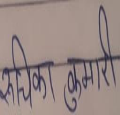 रुचिका कुमारी